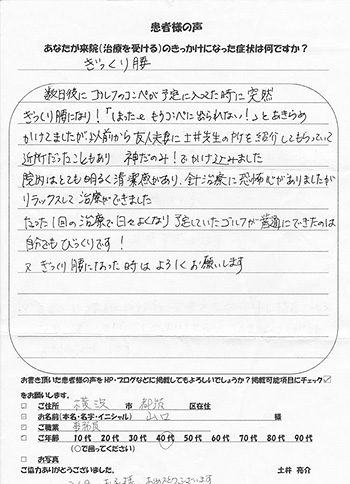 患者様の声
あなたが来院(治療を受ける)のきっかけになった症状は何ですか?
ぎっくり腰
数日後にゴルフのコンペが予定に入ってた時に突然
ぎっくり腰になり!「しまったぁもうコンペに出られない!」とあきらめ
かけてましたが以前から友人夫妻に土井先生のトコを紹介してもらっていて
近所だったこともあり 神だのみ!でかけ込みました
院内はとても明るく清潔感があり、針治療に恐怖心がありましたが
リラックスして治療ができました
たった1回の治療で日々よくなり予定していたゴルフが普通にできたのは
自分でもびっくりです!
又ぎっくり腰になった時はよろしくお願いします
お書き頂いた患者様の声をHP・ブログなどに掲載してもよろしいでしょうか?掲載可能項目にチェック
をお願いします。
ご住所 横浜 市 都筑 区在住
お名前(本名・名字・イニシャル) 山口 様
ご職業
ご年齢 10代 20代 30代 40代 50代 60代 70代 80代 90代
(○で囲ってください)
お写真
ご協力ありがとうございました。 土井 亮介